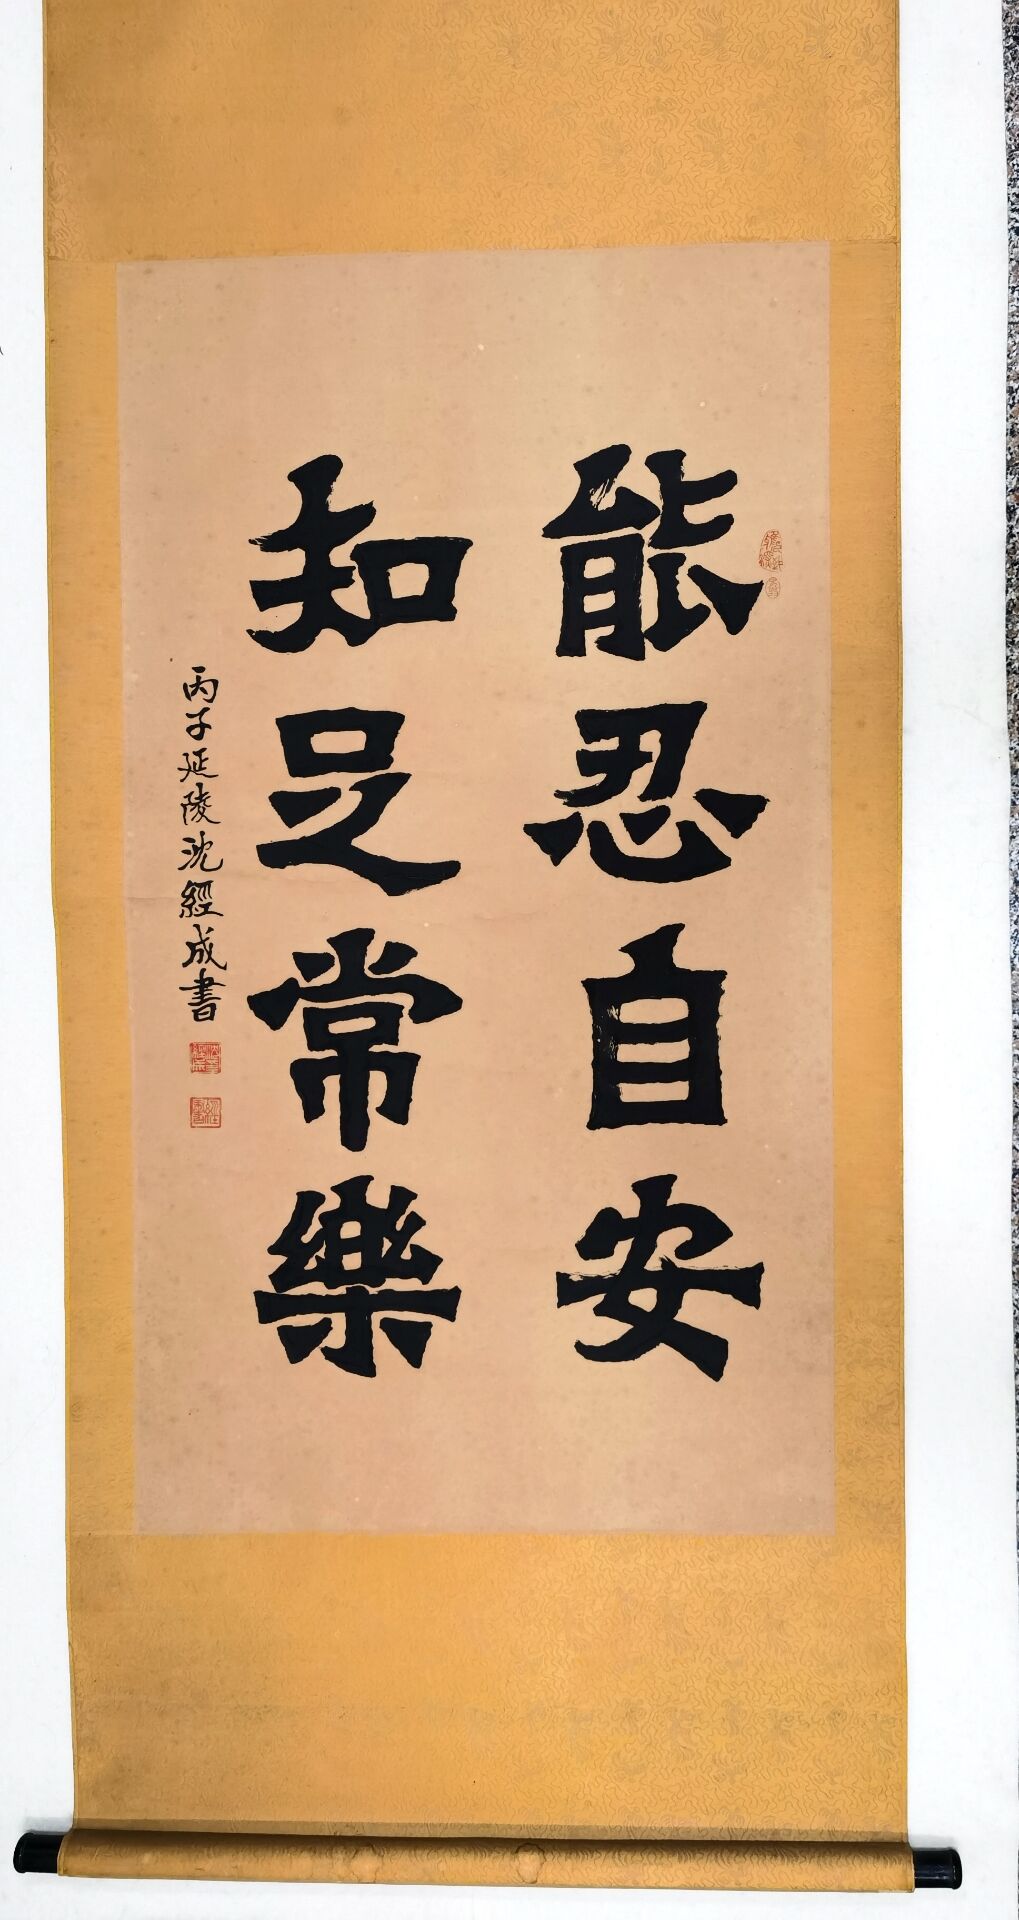 能忍自安
知足常樂
丙子延陵沈經成書